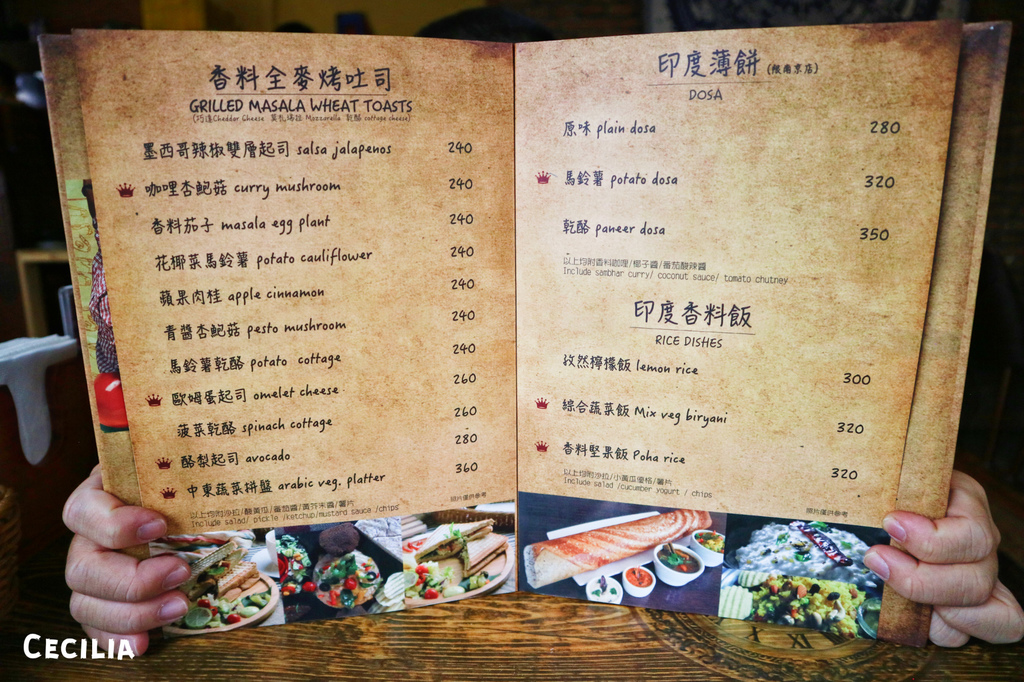 香料全麥烤吐司
GRILLED MASALA WHEAT TOASTS
(巧達Cheddar Cheese 莫札瑞拉 Mozzarella 乾酪 cottage cheese)
墨西哥辣椒雙層起司 salsa jalapenos 240
咖哩杏鮑菇 curry mushroom 240
香料茄子 masala egg plant 240
花椰菜馬鈴薯 potato cauliflower 240
蘋果肉桂 apple cinnamon 240
青醬杏鮑菇 pesto mushroom 240
馬鈴薯乾酪 potato cottage 240
歐姆蛋起司 omelet cheese 260
菠菜乾酪 spinach cottage 260
酪梨起司 avocado 280
中東蔬菜拼盤 arabic veg. platter 360
以上均附沙拉/酸黃瓜/番茄醬/黃芥末醬/薯片
Include salad/ pickle /ketchup/mustard sauce /chips
照片僅供參考
印度薄餅 (限南京店)
DOSA
原味 plain dosa 280
馬鈴薯 potato dosa 320
乾酪 paneer dosa 350
以上均附香料咖哩/椰子醬/番茄酸辣醬
Include sambhar curry/ coconut sauce/ tomato chutney
印度香料飯
RICE DISHES
孜然檸檬飯 lemon rice 300
綜合蔬菜飯 Mix veg biryani 320
香料堅果飯 Poha rice 320
以上均附沙拉/小黃瓜優格/薯片
Include salad /cucumber yogurt / chips
照片僅供參考
CECILIA